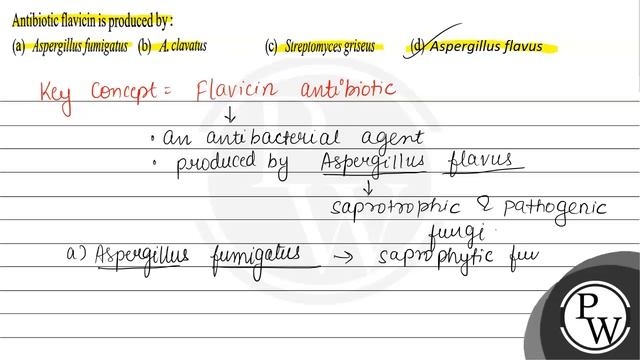 Antibiotic flavicin is produced by :
(a) Aspergillus fumigatus (b) A. clavatus (c) Streptomyces griseus (d) Aspergillus flavus
Key Concept = Flavicin antibiotic
↓
• an antibacterial agent
• produced by Aspergillus flavus
↓
saprotrophic & pathogenic
fungi.
a) Aspergillus fumigatus → saprophytic fun
PW
PW